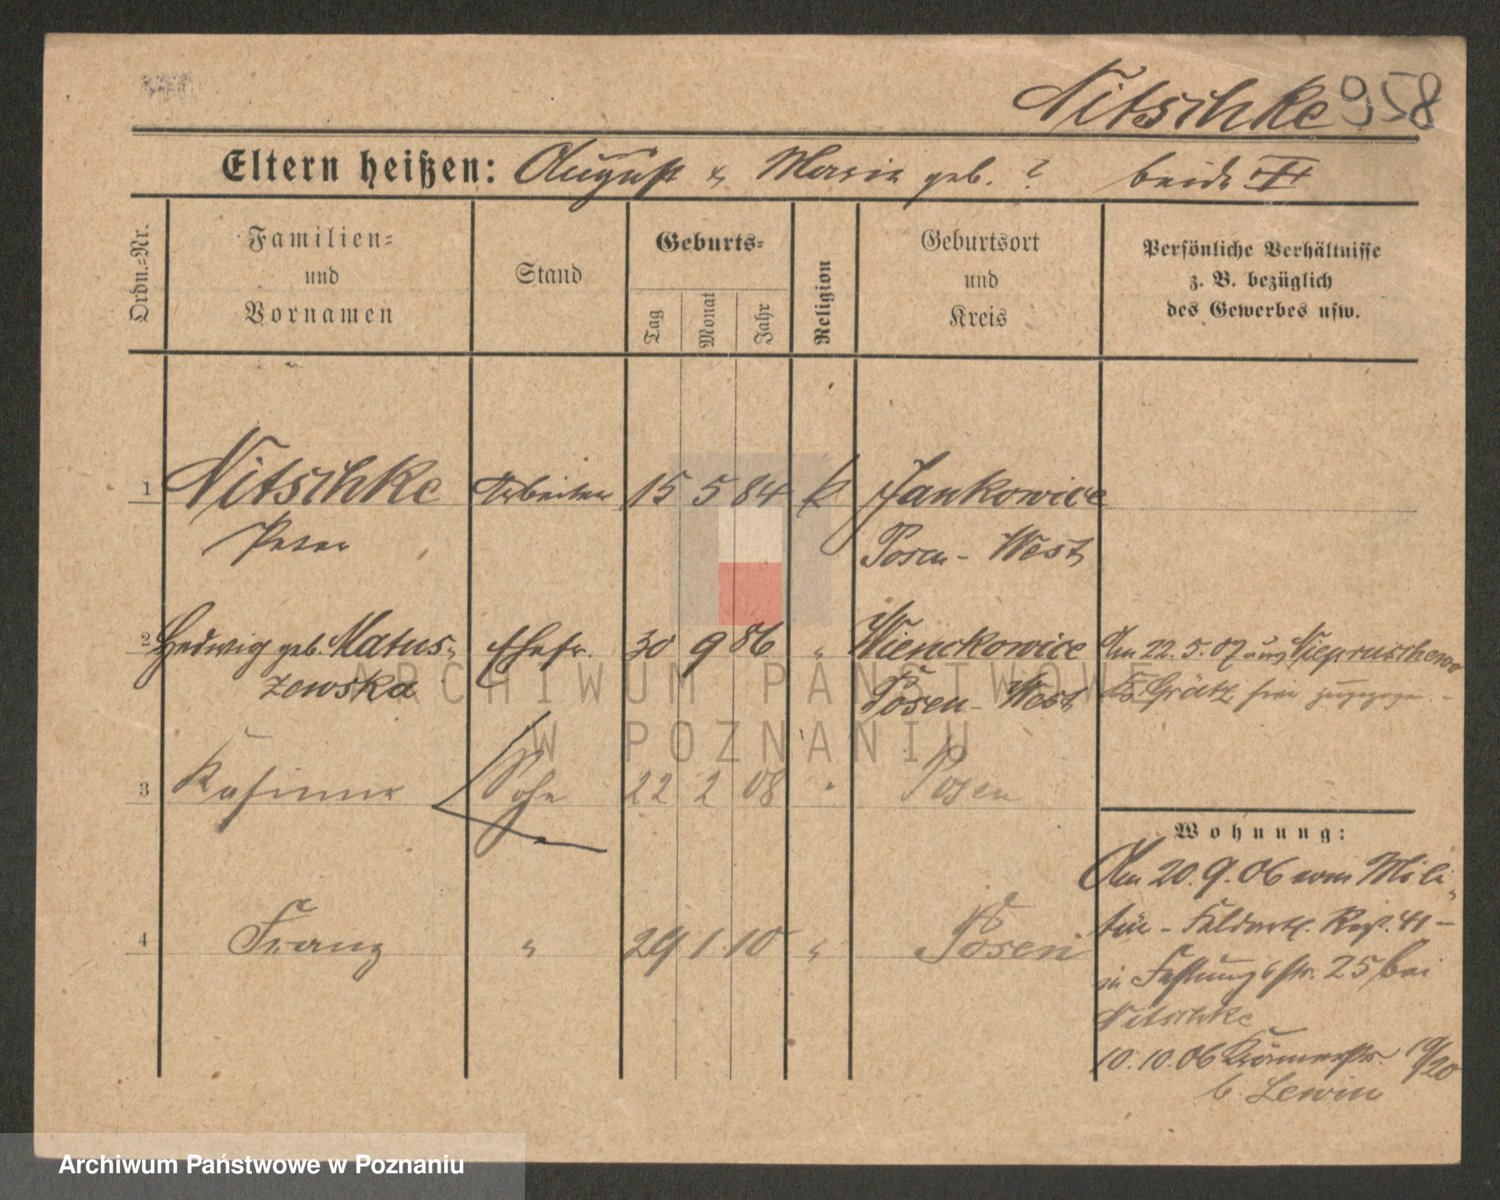 Nitschke 958
Eltern heißen: August u Marie geb. ? beide †
Ordn.-Nr.
Familien-
und
Vornamen
Stand
Geburts-
Tag
Monat
Jahr
Religion
Geburtsort
und
Kreis
Persönliche Verhältnisse
z. B. bezüglich
des Gewerbes usw.
1 Nitschke Arbeiter 15 5 84 k Jankowice
Peter Posen - West
2 Hedwig geb. Matus- Ehefr. 30 9 86 " Wienckowice Am 22. 5. 07 aus Niepruschewo
zewska Posen - West Grätz hier zugezogen. -
3 Kasimir Sohn 22 2 08 " Posen
Wohnung:
Am 20. 9. 06 vom Mili-
tär - Feldartl. Reg. 41 -
4 Franz " 29 1 10 " Posen
in Festungsstr. 25 bei
Nitschke
10. 10. 06 19/20
b. Lewin
ARCHIWUM PAŃSTWOWE
W POZNANIU
Archiwum Państwowe w Poznaniu